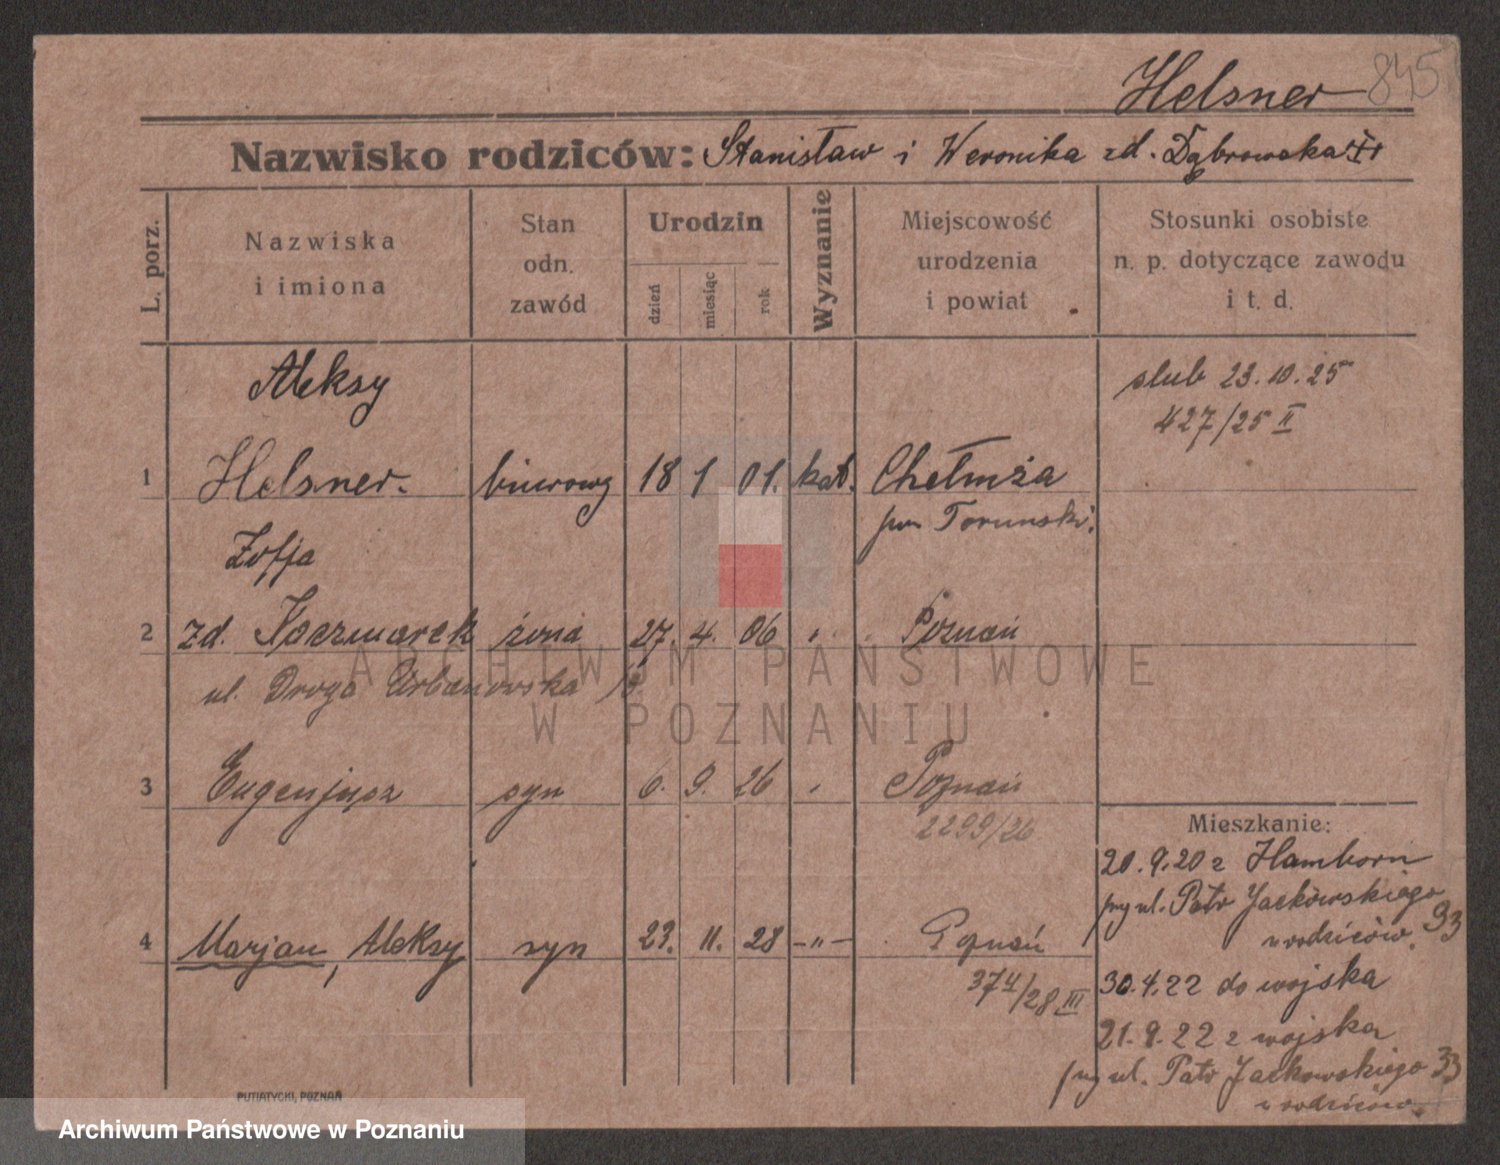 Helsner 845
Nazwisko rodziców: Stanisław i Weronika zd. Dąbrowska
L. porz.
Nazwiska i imiona
Stan odn. zawód
Urodzin
dzień
miesiąc
rok
Wyznanie
Miejscowość urodzenia i powiat
Stosunki osobiste n. p. dotyczące zawodu i t. d.
Aleksy
ślub 23.10.25
427/25 II
1 Helsner. biurowy 18 1 01. kat. Chełmża
pow Toruński.
Zofja
2 zd. Kaczmarek żona 27. 4. 06 " Poznań
ul. Droga Urbanowska
3 Eugenjusz syn 6. 9. 26 " Poznań
2299/26
Mieszkanie:
20.9.20 z Hamborn
przy ul. Patr Jackowskiego 33
u rodziców.
4 Marjan, Aleksy syn 23. 11. 28 -"- Poznań
374/28 III
30.4.22 do wojska
21.9.22 z wojska
przy ul. Patr Jackowskiego 33
u rodziców.
PUTIATYCKI, POZNAŃ
ARCHIWUM PAŃSTWOWE
W POZNANIU
Archiwum Państwowe w Poznaniu